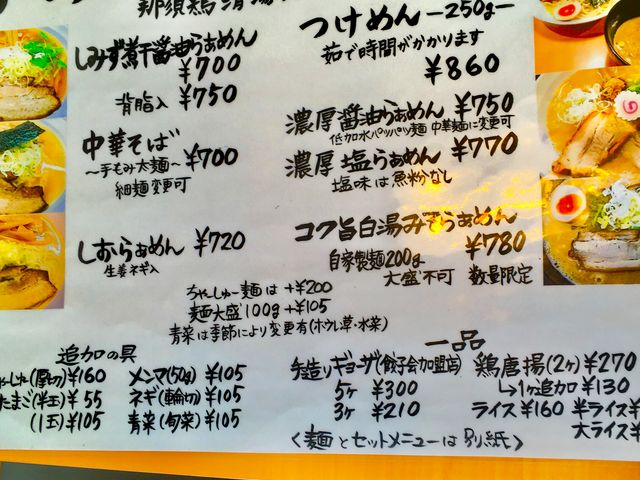 那須鶏清湯
しみず煮干醤油らぁめん
¥700
背脂入 ¥750
中華そば
~手もみ太麺~ ¥700
細麺変更可
しおらぁめん ¥720
生姜ネギ入
つけめん ー250gー
茹で時間がかかります
¥860
濃厚醤油らぁめん ¥750
低加水パツパツ麺 中華麺に変更可
濃厚塩らぁめん ¥770
塩味は魚粉なし
コク旨白湯みそらぁめん
自家製麺200g ¥780
大盛不可 数量限定
ちゃしゅー麺は +¥200
麺大盛100g +¥105
青菜は季節により変更有(ホウレ草・水菜)
追加の具
ちゃーしゅー(厚切)¥160 メンマ(50g) ¥105
たまご(半玉) ¥55 ネギ(輪切) ¥105
(1玉) ¥105 青菜(旬菜) ¥105
一品
手造りギョーザ(餃子会加盟店)
5ヶ ¥300
3ヶ ¥210
鶏唐揚(2ヶ) ¥270
↳1ヶ追加 ¥130
ライス ¥160 半ライス¥
大ライス¥
〈麺とセットメニューは別紙〉